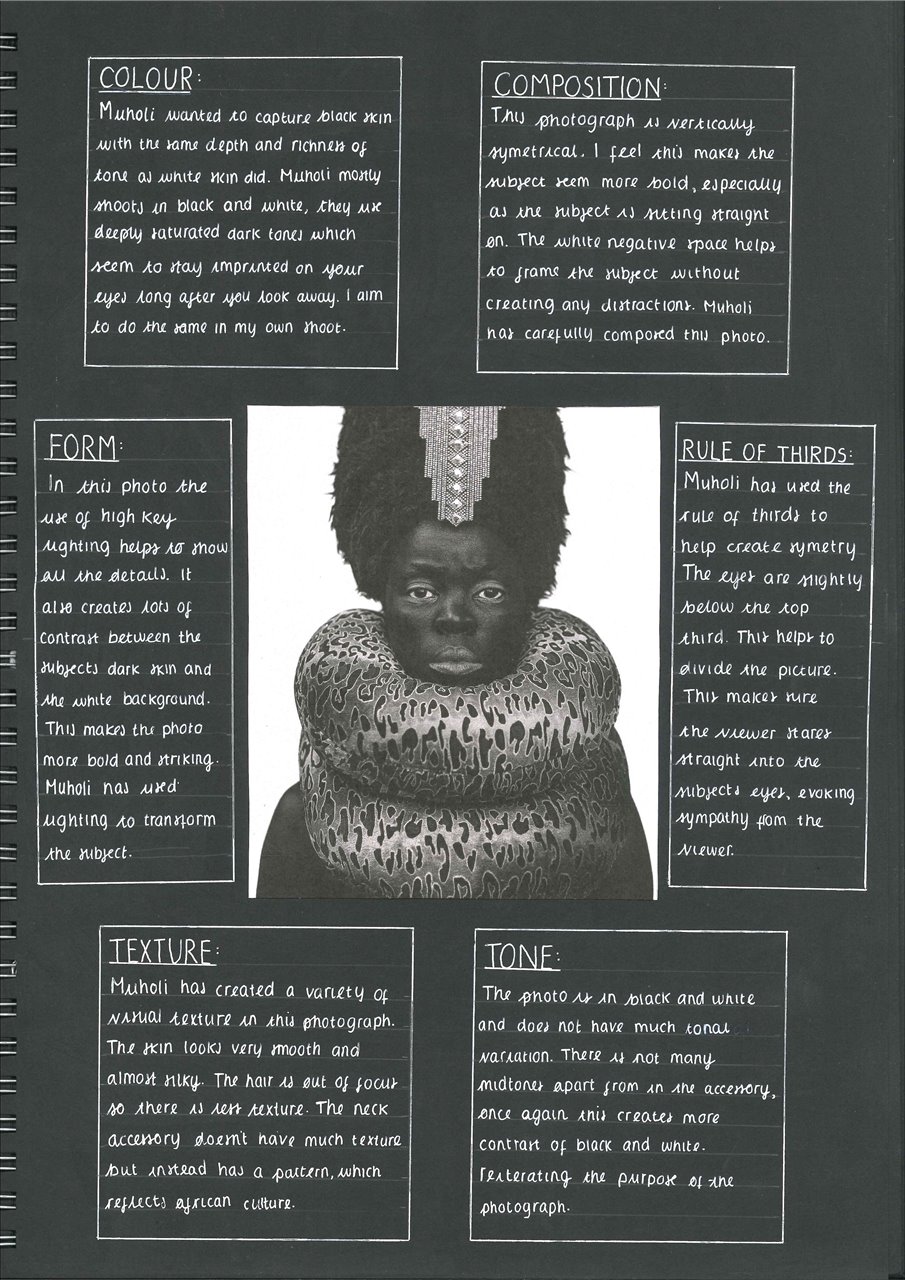 COLOUR:
Muholi wanted to capture black skin
with the same depth and richness of
tone as white skin did. Muholi mostly
shoots in black and white, they use
deeply saturated dark tones which
seem to stay imprinted on your
eyes long after you look away. I aim
to do the same in my own shoot.
COMPOSITION:
This photograph is vertically
symetrical. I feel this makes the
subject seem more bold, especially
as the subject is sitting straight
on. The white negative space helps
to frame the subject without
creating any distractions. Muholi
has carefully composed this photo.
FORM:
In this photo the
use of high key
lighting helps to show
all the details. It
also creates lots of
contrast between the
subjects dark skin and
the white background.
This makes the photo
more bold and striking.
Muholi has used
lighting to transform
the subject.
RULE OF THIRDS:
Muholi has used the
rule of thirds to
help create symetry
The eyes are slightly
below the top
third. This helps to
divide the picture.
This makes sure
the viewer stares
straight into the
subjects eyes, evoking
sympathy from the
viewer.
TEXTURE:
Muholi has created a variety of
visual texture in this photograph.
The skin looks very smooth and
almost silky. The hair is out of focus
so there is less texture. The neck
accessory doesn't have much texture
but instead has a pattern, which
reflects african culture.
TONE:
The photo is in black and white
and does not have much tonal
variation. There is not many
midtones apart from in the accessory,
once again this creates more
contrast of black and white.
Reiterating the purpose of the
photograph.